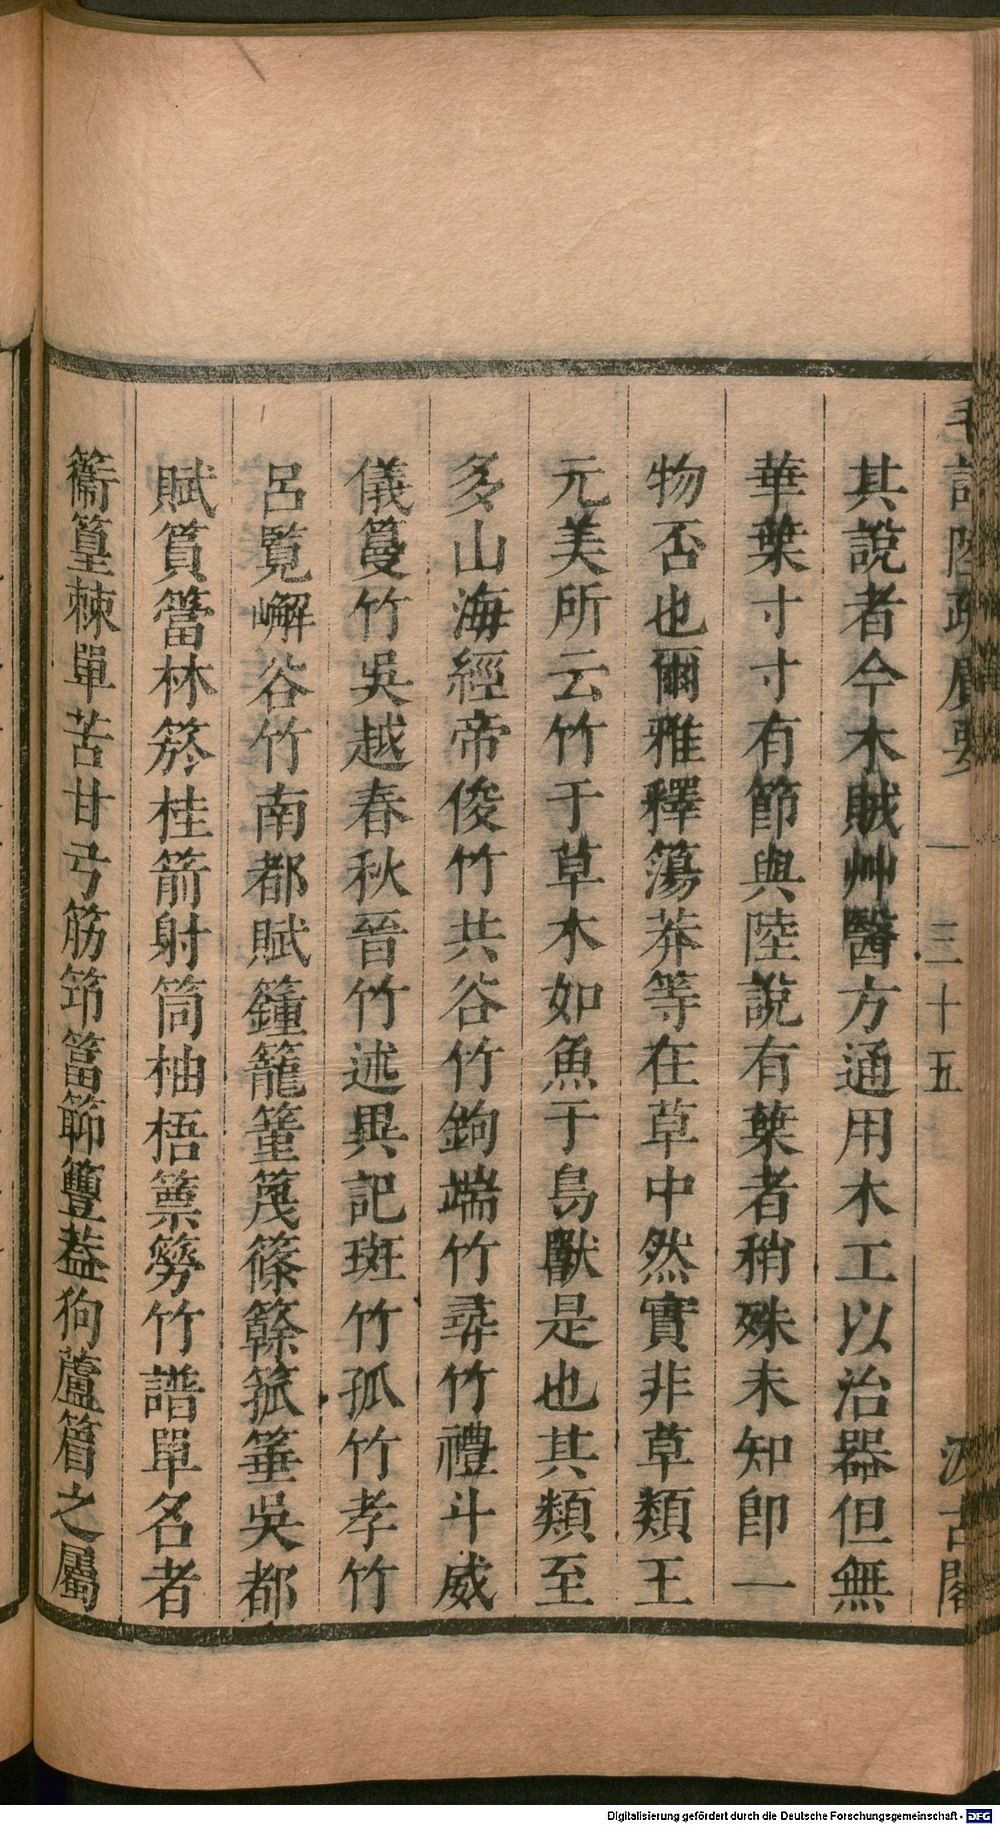 毛詩陸疏廣要 一 三十五 汲古閣
其說者今木賊艸醫方通用木工以治器但無
華葉寸寸有節與陸說有葉者稍殊未知卽一
物否也爾雅釋簜莽等在草中然實非草類王
元美所云竹于草木如魚于鳥獸是也其類至
多山海經帝俊竹共谷竹鉤端竹尋竹禮斗威
儀篃竹吳越春秋晉竹述異記斑竹孤竹孝竹
呂覧嶰谷竹南都賦籦籠篁篾篠簳箛箠吳都
賦篔簹林箊桂箭射筒柚梧篻簩竹譜單名者
簥篁棘單苦甘弓筋筇簹䈽簹葢狗蘆䈾之屬
Digitalisierung gefördert durch die Deutsche Forschungsgemeinschaft - DFG